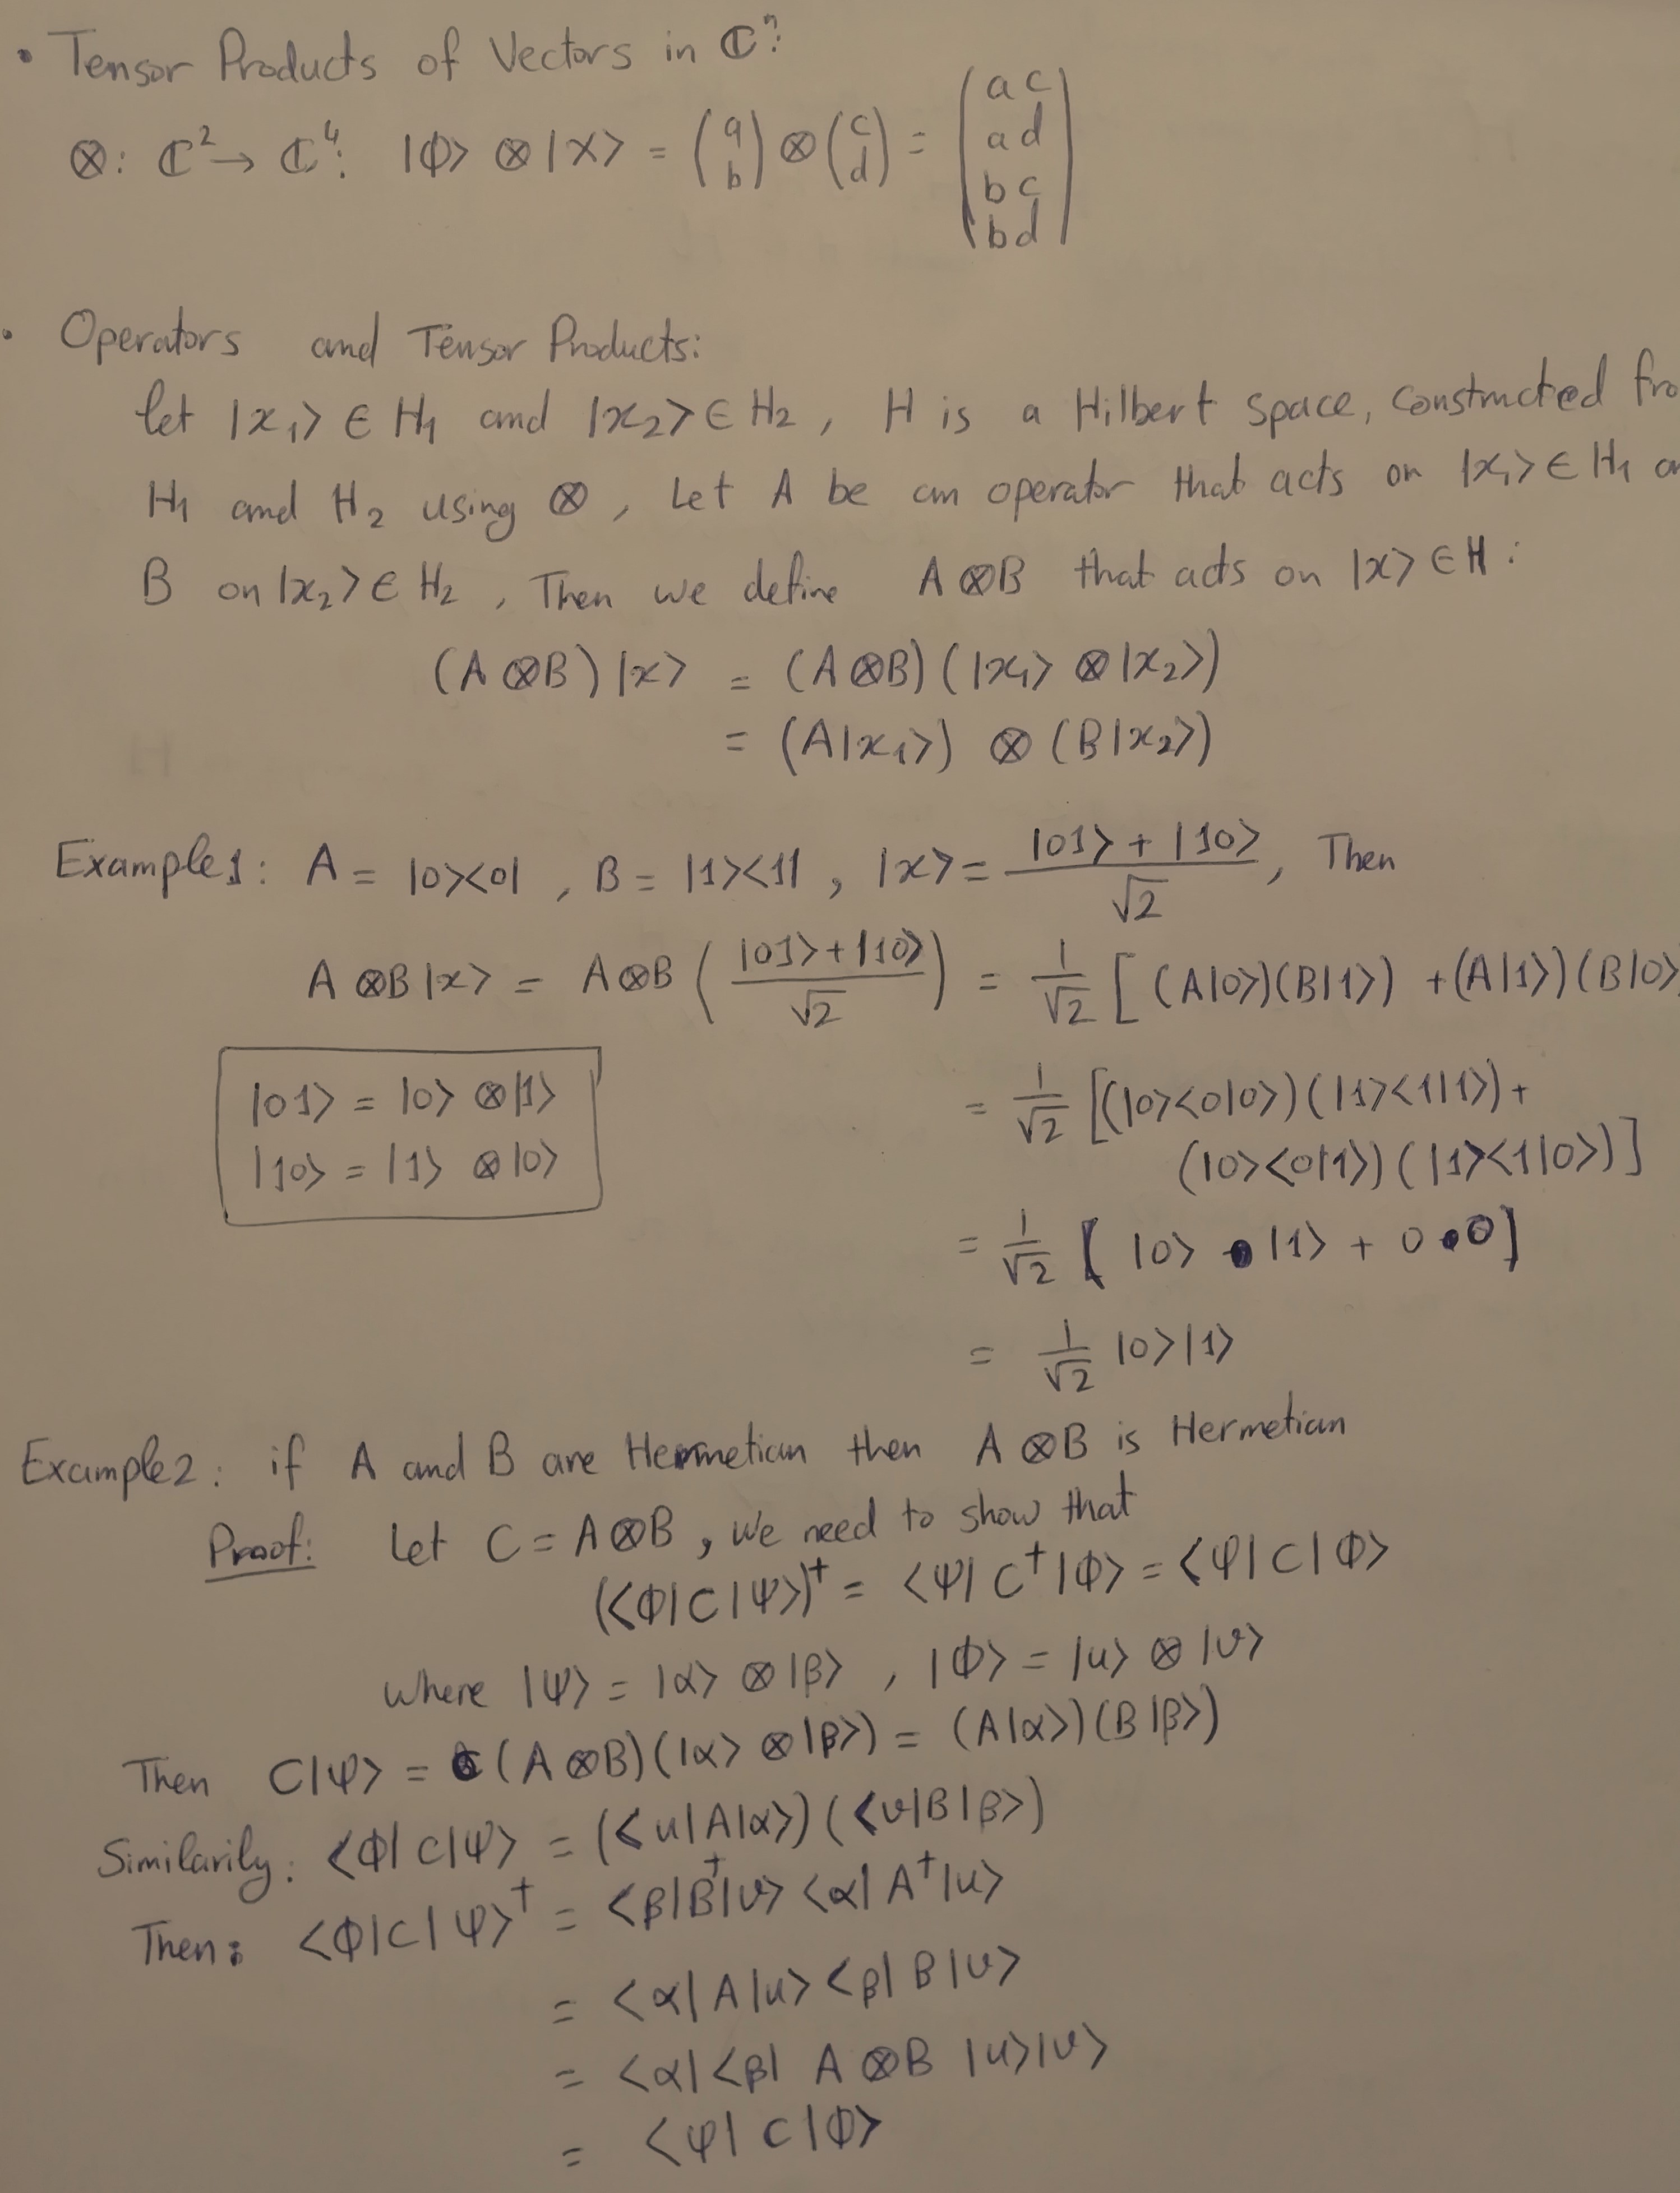 • Tensor Products of Vectors in ℂⁿ:
⊗: ℂ² → ℂ⁴: |Φ> ⊗ |X> = (a b) ⊗ (c d) = (ac ad bc bd)
• Operators and Tensor Products:
let |x₁> ∈ H₁ and |x₂> ∈ H₂, H is a Hilbert space, constructed fro
H₁ and H₂ using ⊗, Let A be an operator that acts on |x₁> ∈ H₁ an
B on |x₂> ∈ H₂, Then we define A ⊗ B that acts on |x> ∈ H:
(A ⊗ B) |x> = (A ⊗ B) (|x₁> ⊗ |x₂>)
= (A|x₁>) ⊗ (B|x₂>)
Example1: A = |0><0| , B = |1><1| , |x> = |01> + |10> / √2, Then
A ⊗ B |x> = A ⊗ B ( |01> + |10> / √2 ) = 1/√2 [ (A|0>)(B|1>) + (A|1>)(B|0>
|01> = |0> ⊗ |1>
|10> = |1> ⊗ |0>
= 1/√2 [(|0><0|0>)(|1><1|1>) +
(|0><0|1>)(|1><1|0>)]
= 1/√2 [ |0> • |1> + 0 • 0 ]
= 1/√2 |0>|1>
Example2: if A and B are Hermetian then A ⊗ B is Hermetian
Proof: Let C = A ⊗ B, we need to show that
(<Φ|C|Ψ>)† = <Ψ| C† |Φ> = <Ψ| C |Φ>
where |Ψ> = |α> ⊗ |β> , |Φ> = |u> ⊗ |v>
Then C|Ψ> = (A ⊗ B)(|α> ⊗ |β>) = (A|α>)(B|β>)
Similarily: <Φ|C|Ψ> = (<u|A|α>)(<v|B|β>)
Then: <Φ|C|Ψ>† = <β|B†|v> <α|A†|u>
= <α|A|u> <β|B|v>
= <α|<β| A ⊗ B |u>|v>
= <Ψ| C |Φ>